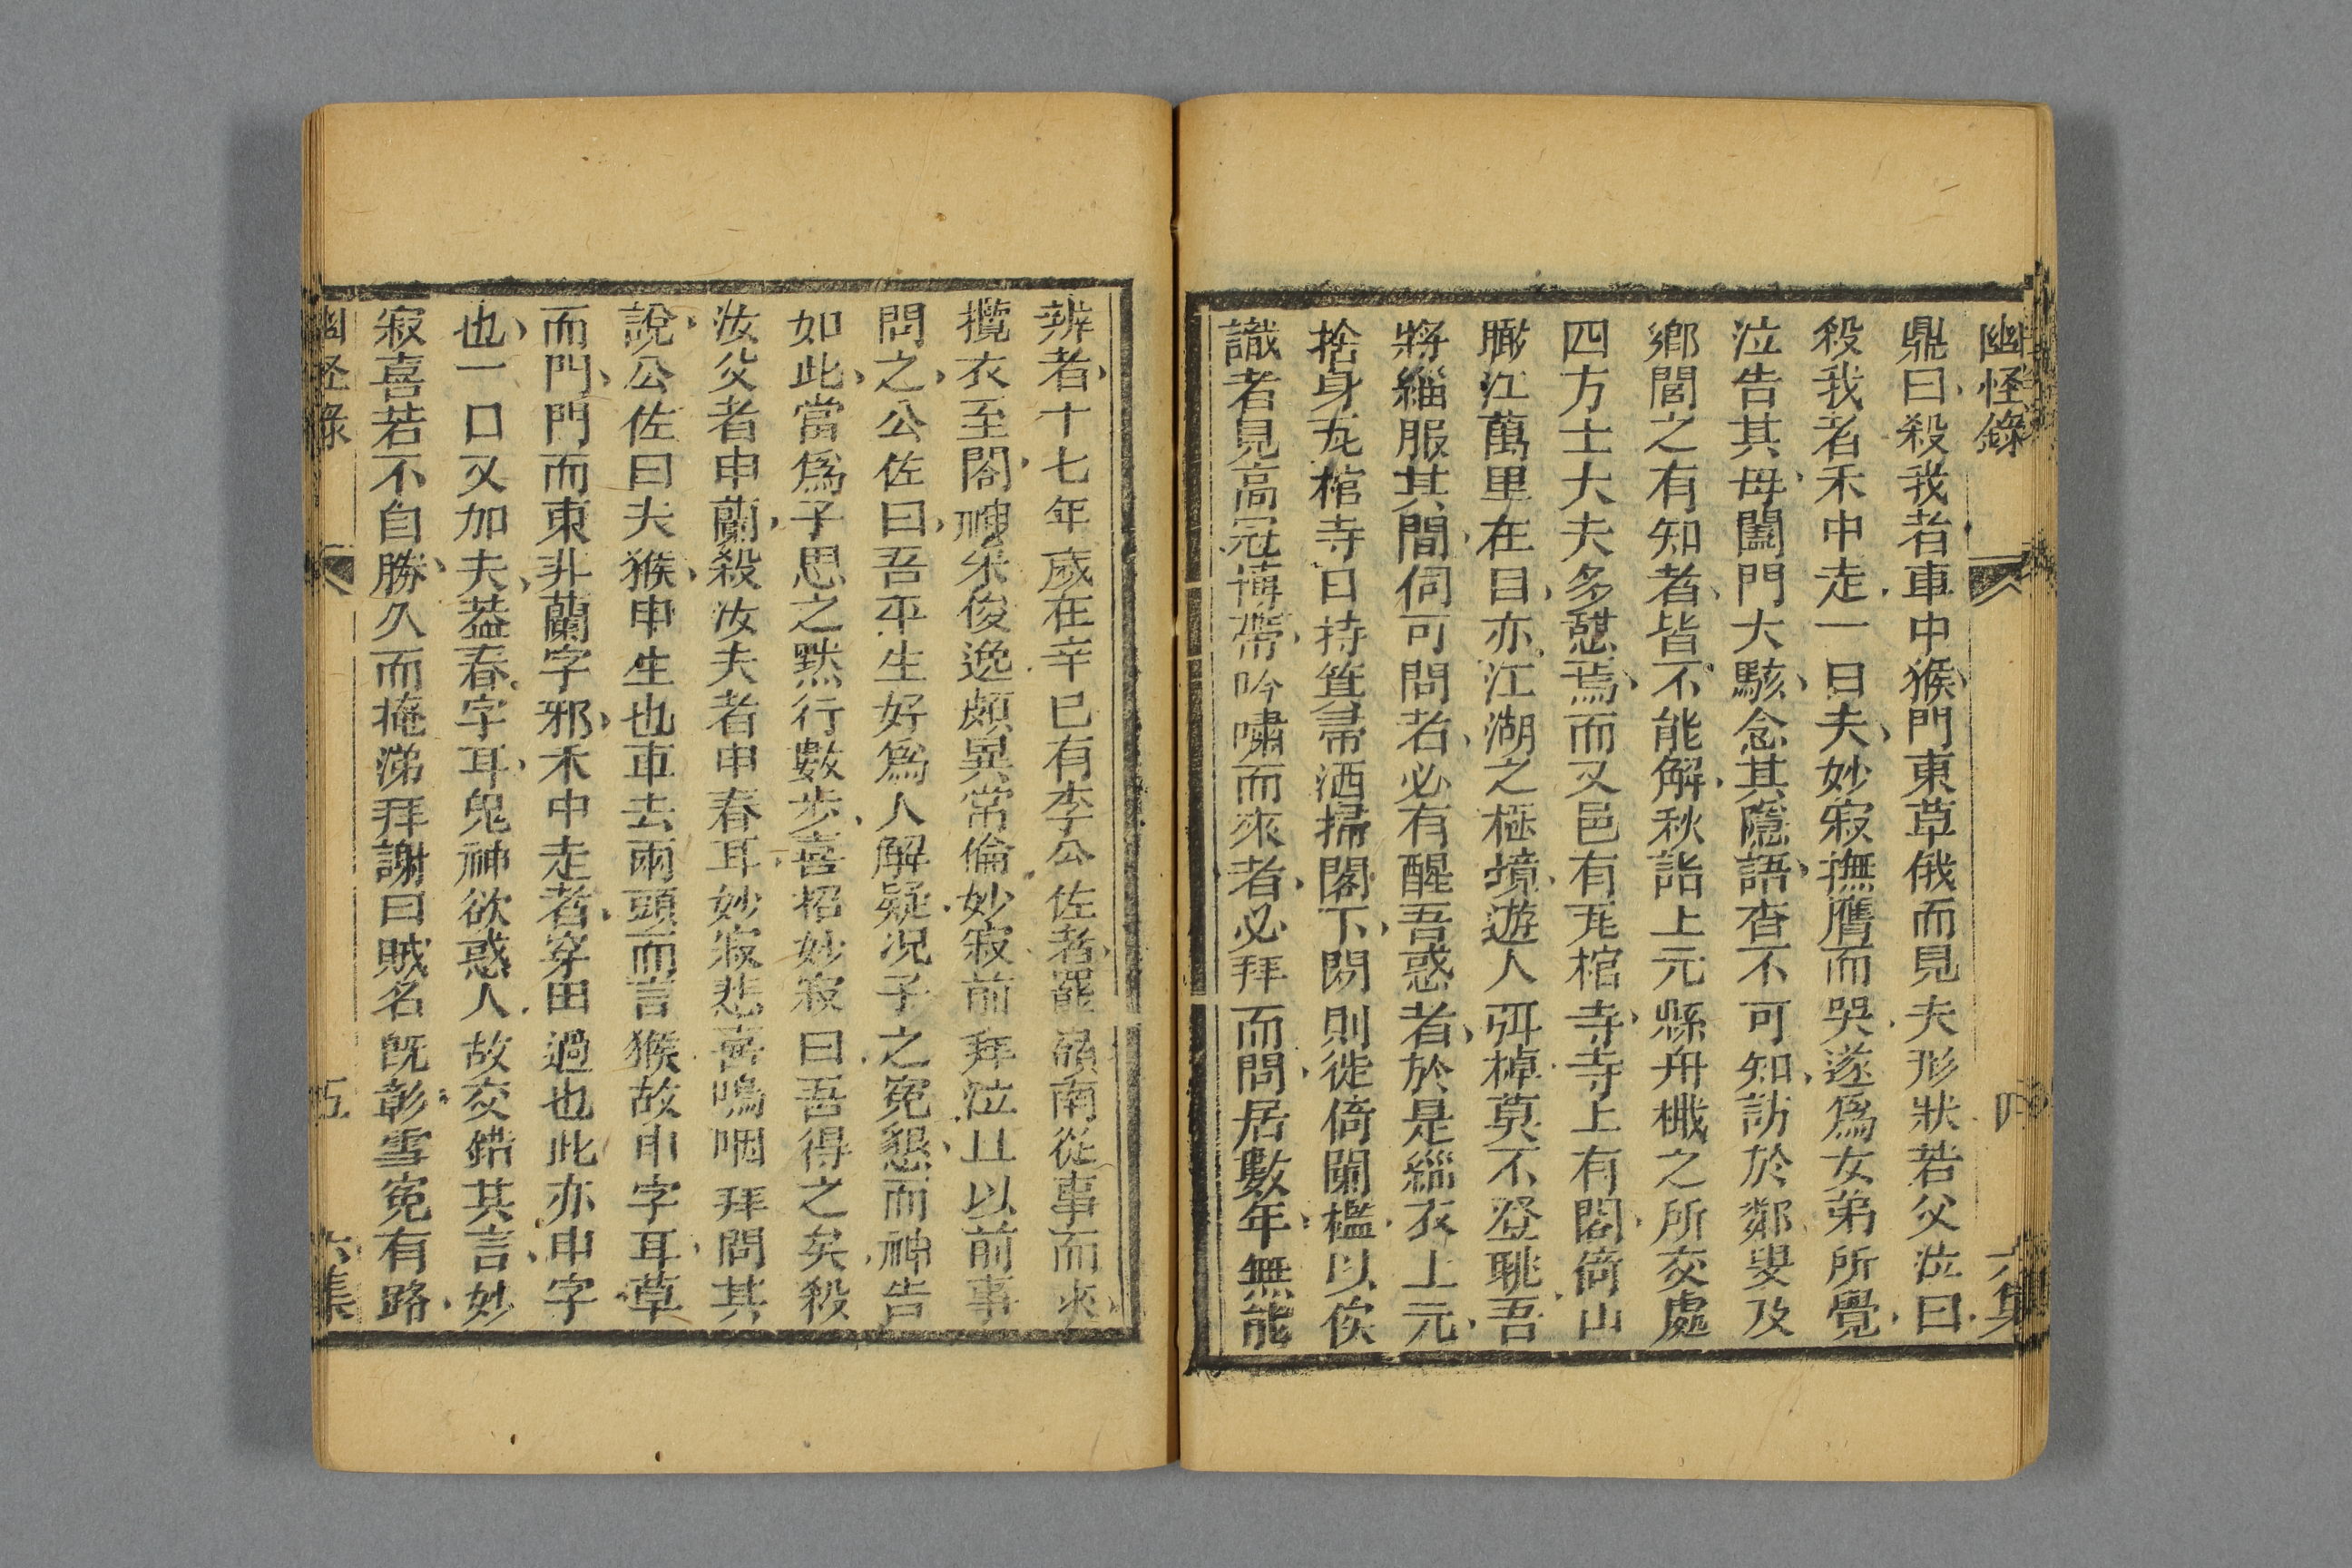 幽怪錄 四 六集
鼎曰殺我者車中猴門東草俄而見夫形狀若父泣曰
殺我者禾中走一日夫妙寂撫膺而哭遂爲女弟所覺
泣告其母闔門大駭念其隱語杳不可知訪於鄰叟及
鄉閭之有知者皆不能解秋詣上元縣舟檝之所交處
四方士大夫多憇焉而又邑有瓦棺寺寺上有閣倚山
瞰江萬里在目亦江湖之極境遊人弭棹莫不登眺吾
將緇服其間伺可問者必有醒吾惑者於是緇衣上元
捨身瓦棺寺日持箕帚洒掃閣下閑則徙倚闌檻以俟
識者見高冠博帶吟嘯而來者必拜而問居數年無能
辨者十七年歲在辛巳有李公佐者罷嶺南從事而來
攬衣至閣神采俊逸頗異常倫妙寂前拜泣且以前事
問之公佐曰吾平生好爲人解疑况子之寃懇而神告
如此當爲子思之黙行數步喜招妙寂曰吾得之矣殺
汝父者申蘭殺汝夫者申春耳妙寂悲喜鳴咽拜問其
說公佐曰夫猴申生也車去兩頭而言猴故申字耳草
而門門而東非蘭字邪禾中走者穿田過也此亦申字
也一日又加夫葢春字耳鬼神欲惑人故交錯其言妙
寂喜若不自勝久而掩涕拜謝曰賊名旣彰雪寃有路
幽怪錄 五 六集